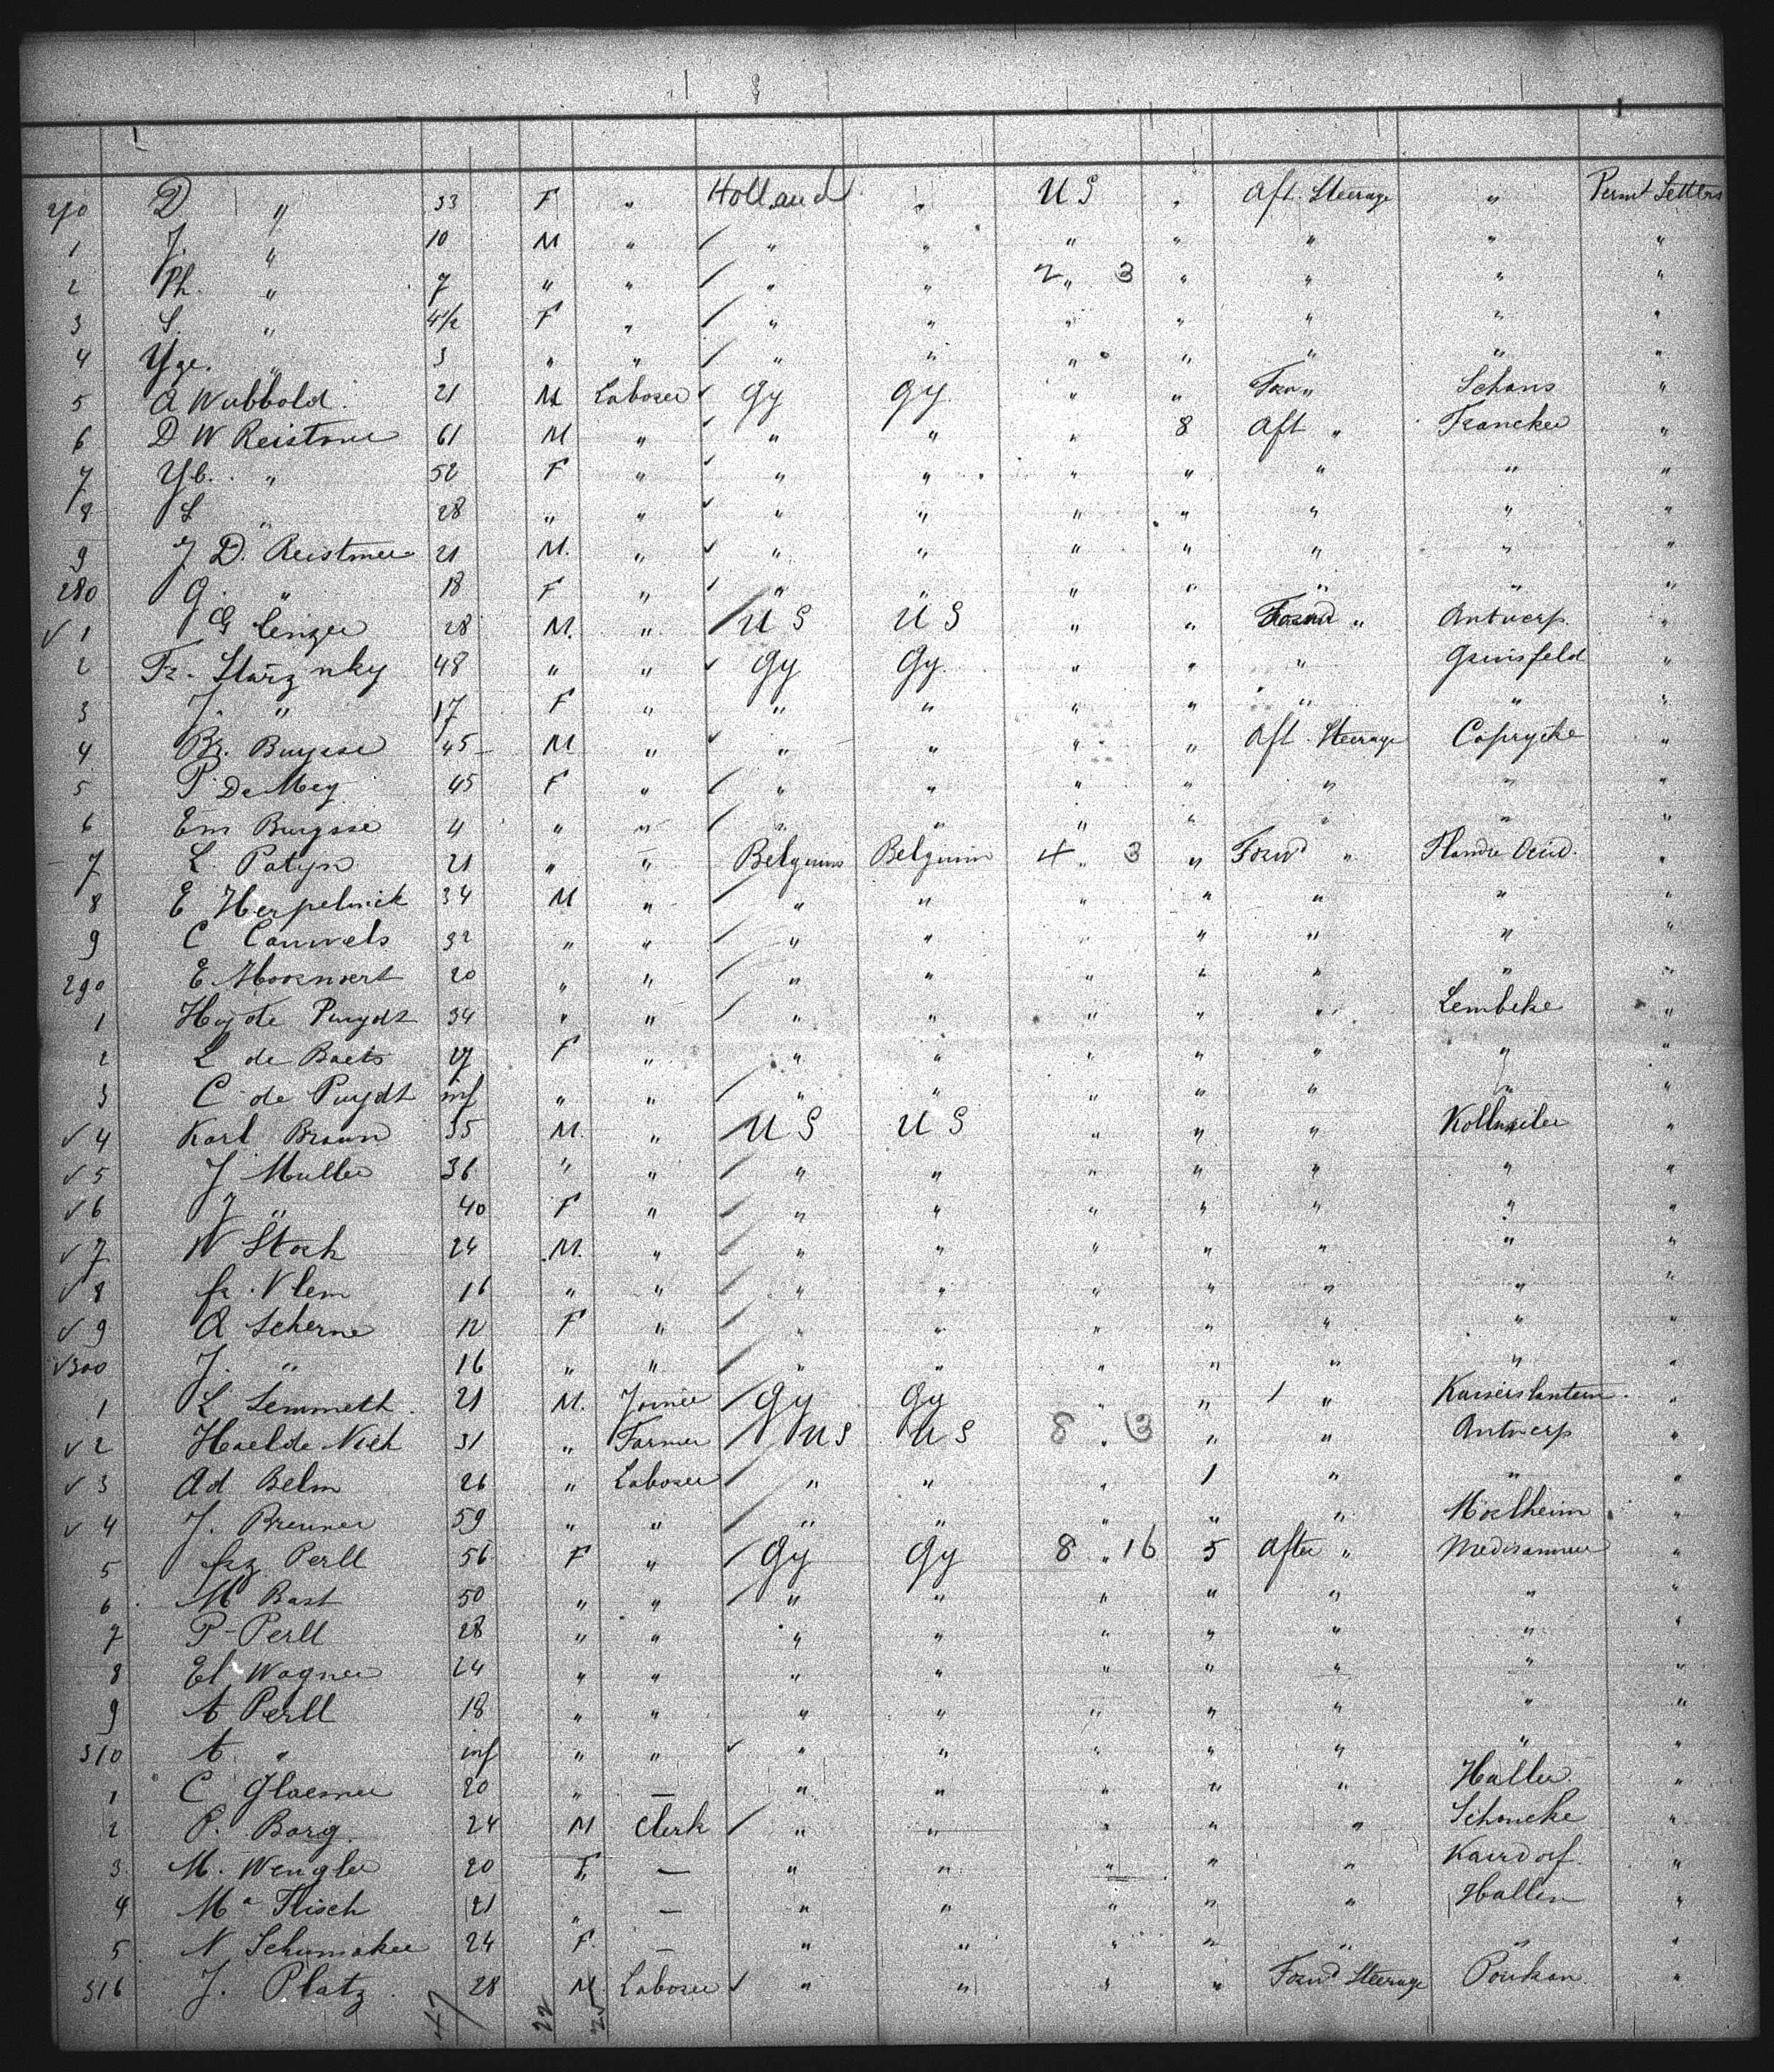 270 D " 33 F " Holland " U S " Aft. Steerage " Permt Settlers
1 J. " 10 M " " " " " " " "
2 Ph. " 7 " " " " 2 " 3 " " " "
3 S. " 4½ F " " " " " " " "
4 Yge. " 3 " " " " " " " " "
5 A Wubbold. 21 M Laborer Gy Gy. " " Forw " Schans "
6 D W Reistmer 61 M " " " " 8 Aft " Francker "
7 Yb. " 52 F " " " " " " " "
8 L " 28 " " " " " " " " "
9 J D. Reistmer 21 M. " " " " " " " "
280 G. " 18 F " " " " " " " "
✓ 1 G Cenzer 28 M. " U S U S " " Forwd " Antwerp. "
2 Fr. Starznky 48 " " Gy Gy. " " " "
3 J. " 17 F " " " " " " " "
4 Br. Buysse 45 M " " " " " Aft. Steerage Caprycke "
5 P De Mey 45 F " " " " " " " "
6 Em Buysse 4 " " " " " " " " "
7 L. Patyn 21 " " Belgium Belgium 4 " 3 " Forwd " Flandre Ocid. "
8 E Herpelinck 34 M " " " " " " " "
9 C Cauwels 32 " " " " " " " " "
290 E. 20 " " " " " " " " "
1 Hy de Puydt 34 " " " " " " " Lembeke "
2 L de Baets 27 F " " " " " " " "
3 C de Puydt inf " " " " " " " " "
✓ 4 Karl Braun 35 M. " U S U S " " " Kollweiler "
✓ 5 J Muller 36 " " " " " " " " "
✓ 6 J " 40 F " " " " " " " "
✓ 7 W Stock 24 M. " " " " " " " "
✓ 8 fr. Vlem 16 " " " " " " " " "
✓ 9 A Scherne 12 F " " " " " " " "
✓ 300 J. " 16 " " " " " " " " "
1 L Lemmeth. 21 M. Joiner Gy Gy " " " Kaiserslautern. "
✓ 2 Haelde Nich 31 " Farmer U S U S 8 " 3 " " Antwerp "
✓ 3 Ad Belm 26 " Laborer " " " 1 " " "
✓ 4 J. Brenner 59 " " " " " " " Moelheim "
5 frz Perll 56 F " Gy Gy 8 " 16 5 After " "
6 M Bast 50 " " " " " " " " "
7 P Perll 28 " " " " " " " " "
8 El Wagner 24 " " " " " " " " "
9 A Perll 18 " " " " " " " " "
310 A. " inf " " " " " " " " "
1 C Glaesner 20 " — " " " " " Haller "
2 P. Barg. 24 M Clerk " " " " " Schoncke "
3 M. Wengler 20 F. — " " " " " Kaisdorf. "
4 Ma Flisch 21 " — " " " " " Hallen "
5 N Schumaker 24 F. — " " " " " " "
316 J. Platz. 28 M Laborer " " " " Forwd Steerage "
47 22 25